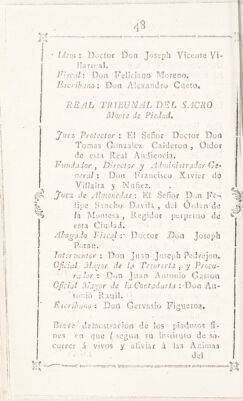 48
Idem: Doctor Don Joseph Vicente Vi-
llarreal.
Fiscal: Don Feliciano Moreno.
Escribano: Don Alexandro Cueto.
REAL TRIBUNAL DEL SACRO
Monte de Piedad.
Juez Protector: El Señor Doctor Don
Tomas Gonzalez Calderon, Oidor
de esta Real Audiencia.
Fundador, Director y Administrador Ge-
neral: Don Francisco Xavier do
Villalta y Nuñez.
Juez de Almonedas: El Señor Don Fe-
lipe Sancho Davila, del Orden de
la Montesa, Regidor perpetuo de
esta Ciudad.
Abogado Fiscal: Doctor Don Joseph
Interventor: Don Juan Joseph Pedrajon.
Oficial Mayor de la Tesoreria, y Procu-
rador: Don Juan Antonio Gaston
Oficial Mayor de la Contaduria: Don An-
tonio
Escribano: Don Gervasio Figueroa.
Breve demostracion de los piadosos fi-
nes en que (segun su instituto de so-
correr á vivos y aliviar á las Animas
del